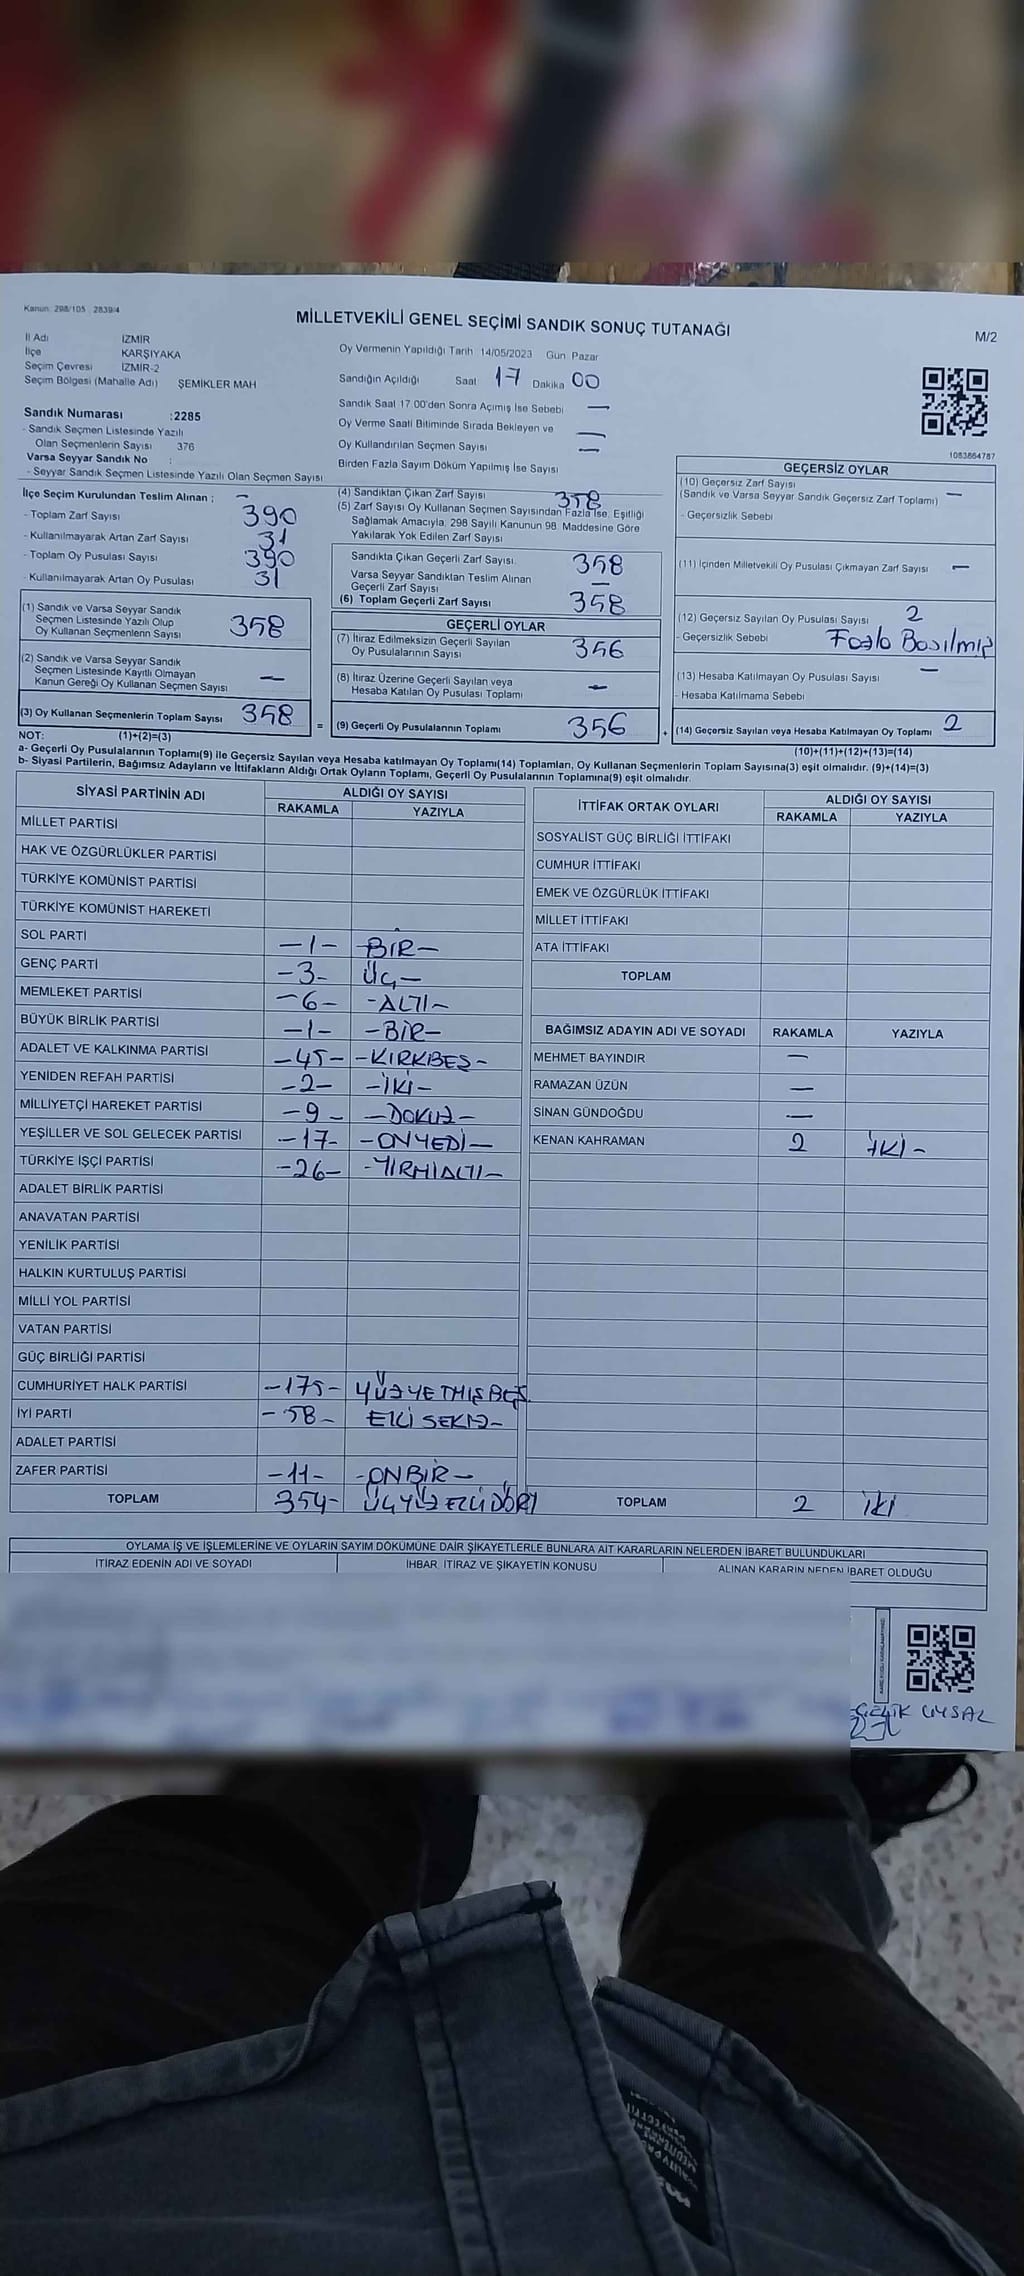 Kanun: 298/105 : 2839/4
MİLLETVEKİLİ GENEL SEÇİMİ SANDIK SONUÇ TUTANAĞI
M/2
İl Adı İZMİR
İlçe KARŞIYAKA
Seçim Çevresi İZMİR-2
Seçim Bölgesi (Mahalle Adı) ŞEMİKLER MAH
Oy Vermenin Yapıldığı Tarih 14/05/2023 Gün Pazar
Sandığın Açıldığı Saat 17 Dakika 00
Sandık Saat 17:00'den Sonra Açımış İse Sebebi —
Oy Verme Saati Bitiminde Sırada Bekleyen ve —
Oy Kullandırılan Seçmen Sayısı —
Birden Fazla Sayım Döküm Yapılmış İse Sayısı
1083864787
Sandık Numarası :2285
- Sandık Seçmen Listesinde Yazılı
Olan Seçmenlerin Sayısı 376
Varsa Seyyar Sandık No :
- Seyyar Sandık Seçmen Listesinde Yazılı Olan Seçmen Sayısı
İlçe Seçim Kurulundan Teslim Alınan : -
- Toplam Zarf Sayısı 390
- Kullanılmayarak Artan Zarf Sayısı 31
- Toplam Oy Pusulası Sayısı 390
- Kullanılmayarak Artan Oy Pusulası 31
(1) Sandık ve Varsa Seyyar Sandık
Seçmen Listesinde Yazılı Olup
Oy Kullanan Seçmenlerin Sayısı 358
(2) Sandık ve Varsa Seyyar Sandık
Seçmen Listesinde Kayıtlı Olmayan
Kanun Gereği Oy Kullanan Seçmen Sayısı —
(3) Oy Kullanan Seçmenlerin Toplam Sayısı 358
(1)+(2)=(3)
(4) Sandıktan Çıkan Zarf Sayısı 358
(5) Zarf Sayısı Oy Kullanan Seçmen Sayısından Fazla İse, Eşitliği
Sağlamak Amacıyla, 298 Sayılı Kanunun 98. Maddesine Göre
Yakılarak Yok Edilen Zarf Sayısı
Sandıkta Çıkan Geçerli Zarf Sayısı. 358
Varsa Seyyar Sandıktan Teslim Alınan
Geçerli Zarf Sayısı —
(6) Toplam Geçerli Zarf Sayısı 358
GEÇERLİ OYLAR
(7) İtiraz Edilmeksizin Geçerli Sayılan
Oy Pusulalarının Sayısı 356
(8) İtiraz Üzerine Geçerli Sayılan veya
Hesaba Katılan Oy Pusulası Toplamı —
= (9) Geçerli Oy Pusulalarının Toplamı 356
GEÇERSİZ OYLAR
(10) Geçersiz Zarf Sayısı
(Sandık ve Varsa Seyyar Sandık Geçersiz Zarf Toplamı) —
- Geçersizlik Sebebi
(11) İçinden Milletvekili Oy Pusulası Çıkmayan Zarf Sayısı —
(12) Geçersiz Sayılan Oy Pusulası Sayısı 2
- Geçersizlik Sebebi Fazla Basılmış
(13) Hesaba Katılmayan Oy Pusulası Sayısı —
- Hesaba Katılmama Sebebi
+ (14) Geçersiz Sayılan veya Hesaba Katılmayan Oy Toplamı 2
(10)+(11)+(12)+(13)=(14)
NOT:
a- Geçerli Oy Pusulalarının Toplamı(9) ile Geçersiz Sayılan veya Hesaba katılmayan Oy Toplamı(14) Toplamları, Oy Kullanan Seçmenlerin Toplam Sayısına(3) eşit olmalıdır. (9)+(14)=(3)
b- Siyasi Partilerin, Bağımsız Adayların ve İttifakların Aldığı Ortak Oyların Toplamı, Geçerli Oy Pusulalarının Toplamına(9) eşit olmalıdır.
SİYASİ PARTİNİN ADI ALDIĞI OY SAYISI
RAKAMLA YAZIYLA
MİLLET PARTİSİ
HAK VE ÖZGÜRLÜKLER PARTİSİ
TÜRKİYE KOMÜNİST PARTİSİ
TÜRKİYE KOMÜNİST HAREKETİ
SOL PARTİ -1- BİR-
GENÇ PARTİ -3- ÜÇ-
MEMLEKET PARTİSİ -6- -ALTI-
BÜYÜK BİRLİK PARTİSİ -1- -BİR-
ADALET VE KALKINMA PARTİSİ -45- -KIRKBEŞ-
YENİDEN REFAH PARTİSİ -2- -İKİ-
MİLLİYETÇİ HAREKET PARTİSİ -9- -DOKUZ-
YEŞİLLER VE SOL GELECEK PARTİSİ -17- -ONYEDİ-
TÜRKİYE İŞÇİ PARTİSİ -26- -YİRMİALTI-
ADALET BİRLİK PARTİSİ
ANAVATAN PARTİSİ
YENİLİK PARTİSİ
HALKIN KURTULUŞ PARTİSİ
MİLLİ YOL PARTİSİ
VATAN PARTİSİ
GÜÇ BİRLİĞİ PARTİSİ
CUMHURİYET HALK PARTİSİ -175- YÜZYETMİŞBEŞ
İYİ PARTİ -58- ELLİSEKİZ-
ADALET PARTİSİ
ZAFER PARTİSİ -11- -ONBİR-
TOPLAM 354- ÜÇYÜZELLİDÖRT
İTTİFAK ORTAK OYLARI ALDIĞI OY SAYISI
RAKAMLA YAZIYLA
SOSYALİST GÜÇ BİRLİĞİ İTTİFAKI
CUMHUR İTTİFAKI
EMEK VE ÖZGÜRLÜK İTTİFAKI
MİLLET İTTİFAKI
ATA İTTİFAKI
TOPLAM
BAĞIMSIZ ADAYIN ADI VE SOYADI RAKAMLA YAZIYLA
MEHMET BAYINDIR —
RAMAZAN ÜZÜN —
SİNAN GÜNDOĞDU —
KENAN KAHRAMAN 2 İKİ-
TOPLAM 2 İKİ
OYLAMA İŞ VE İŞLEMLERİNE VE OYLARIN SAYIM DÖKÜMÜNE DAİR ŞİKAYETLERLE BUNLARA AİT KARARLARIN NELERDEN İBARET BULUNDUKLARI
İTİRAZ EDENİN ADI VE SOYADI İHBAR, İTİRAZ VE ŞİKAYETİN KONUSU ALINAN KARARIN NEDEN İBARET OLDUĞU
UYSAL